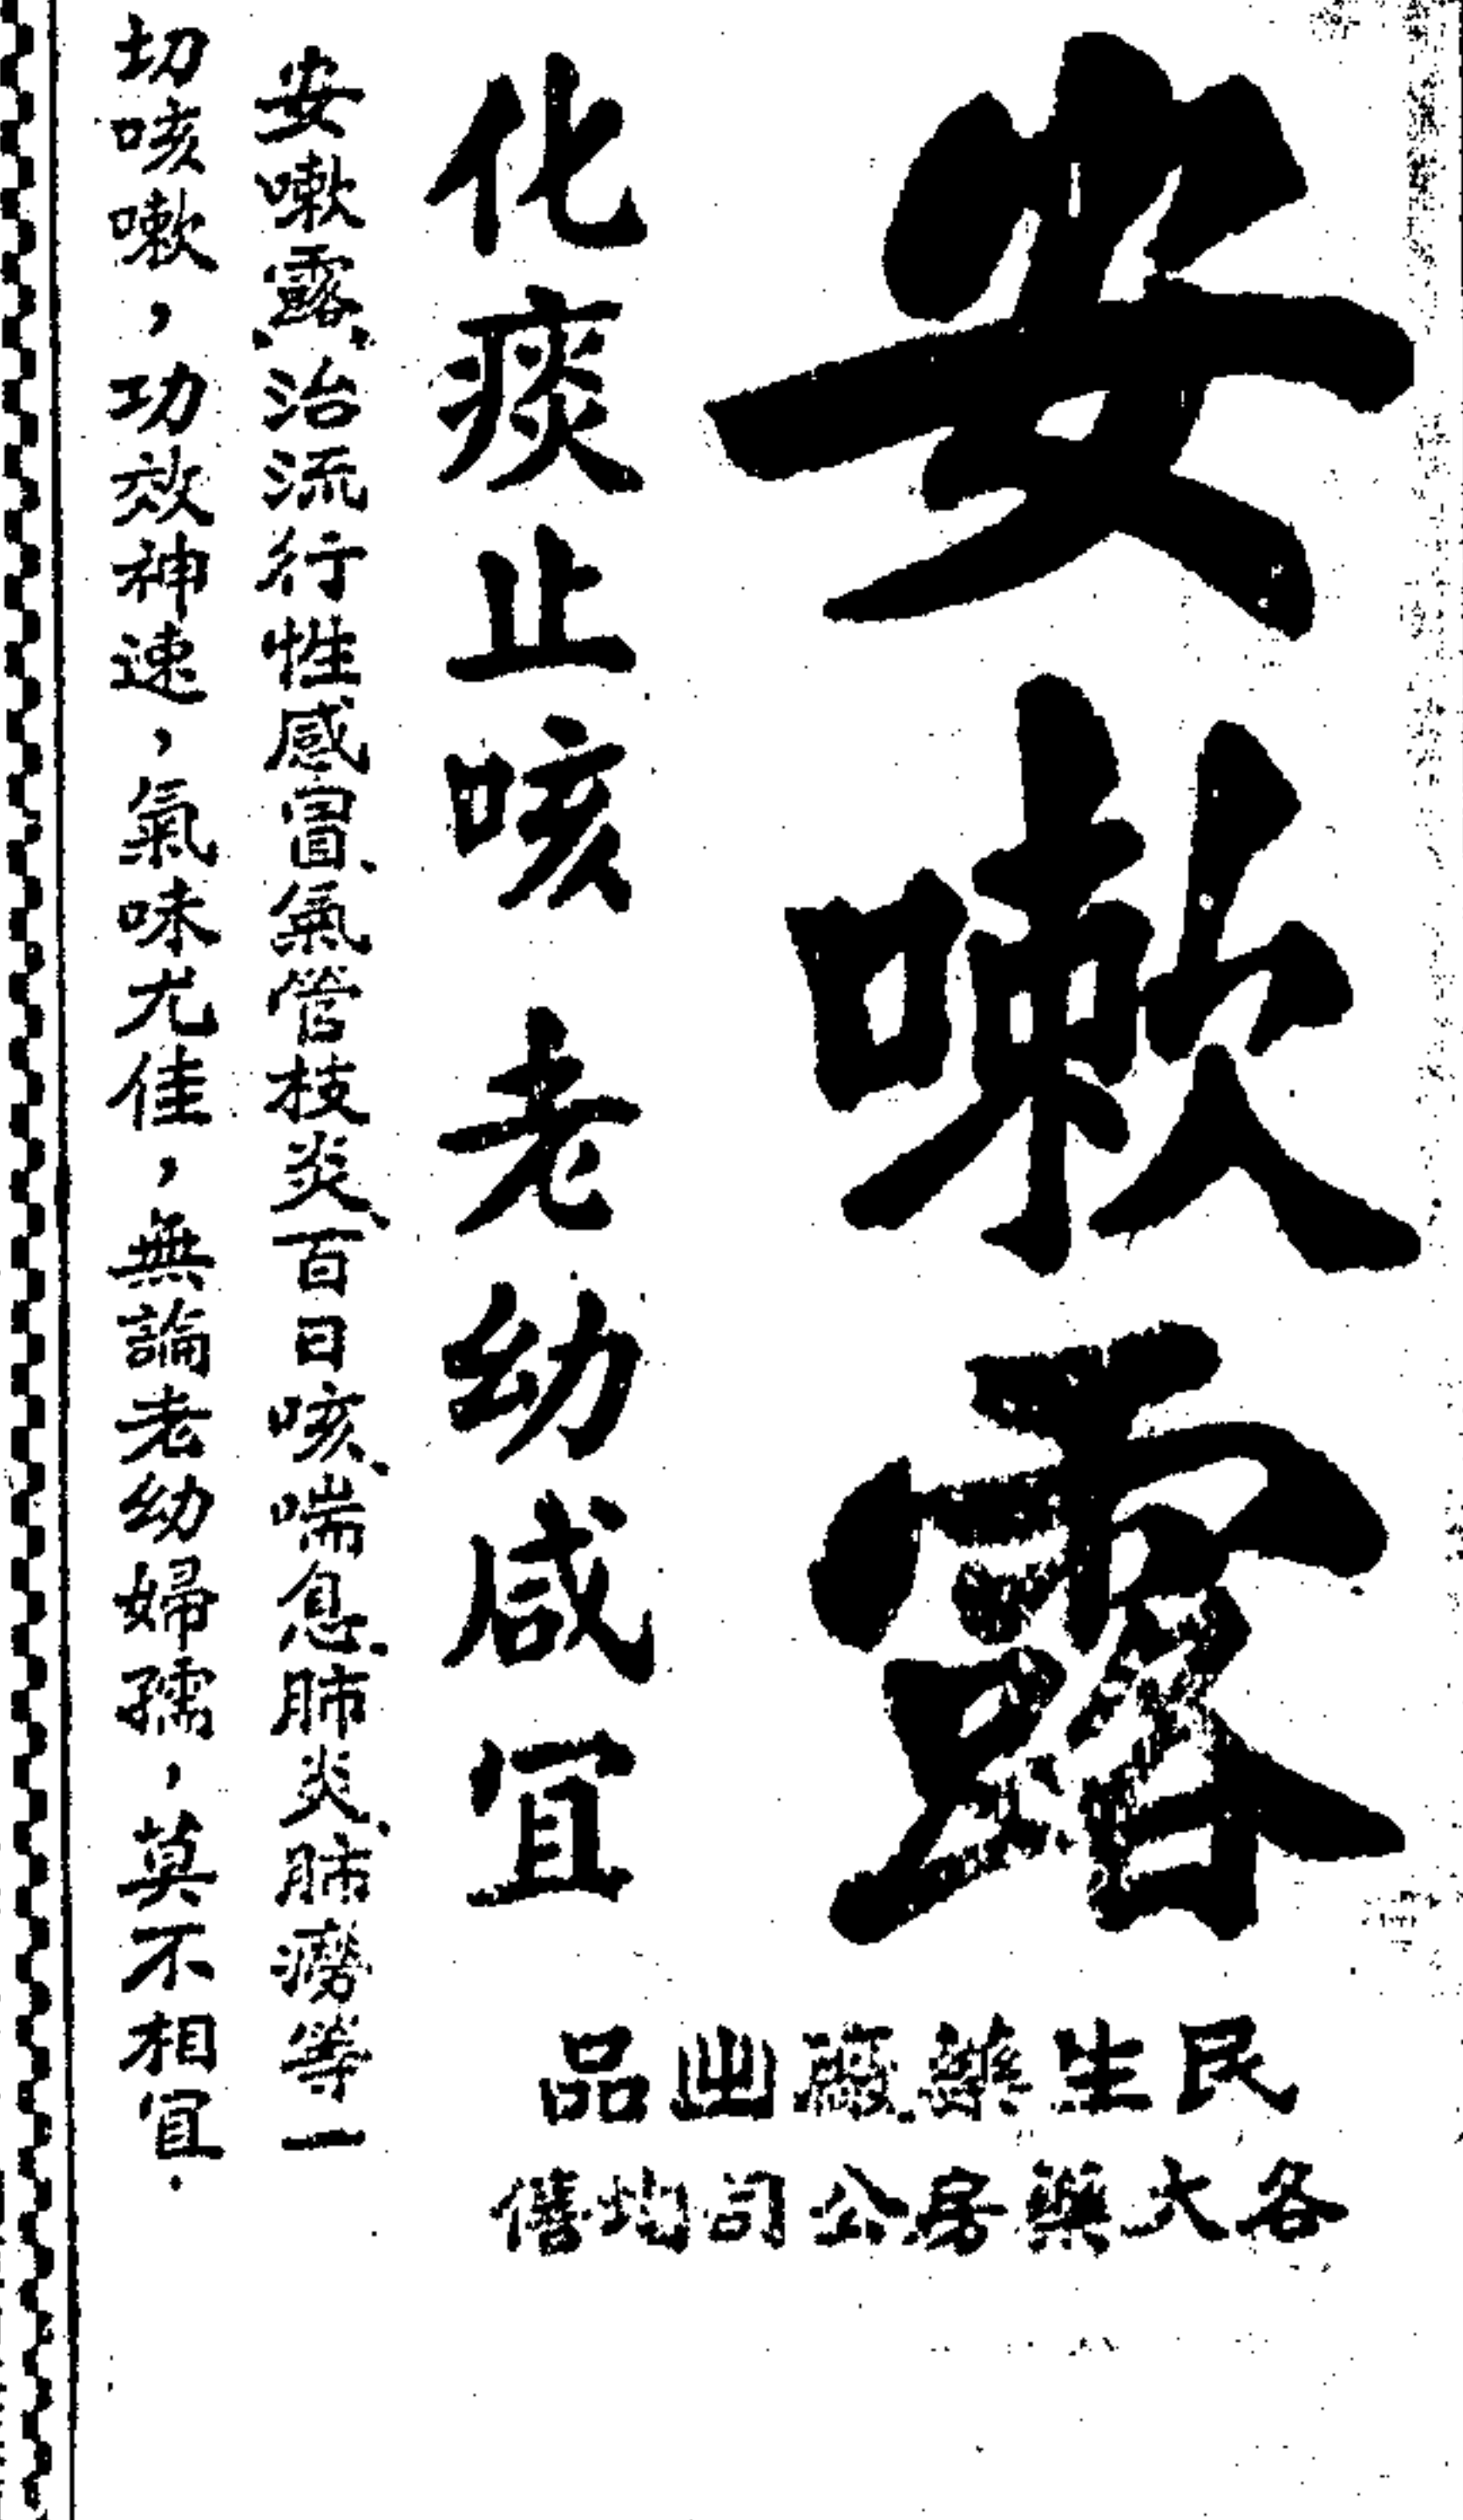 安嗽露
民生藥廠出品
各大藥房公司均售
化痰止咳老幼咸宜
安嗽露、治流行性感冒、氣管枝炎、百日咳、喘息、肺炎、肺癆等一
切咳嗽，功效神速，氣味尤佳，無論老幼婦孺，莫不相宜．